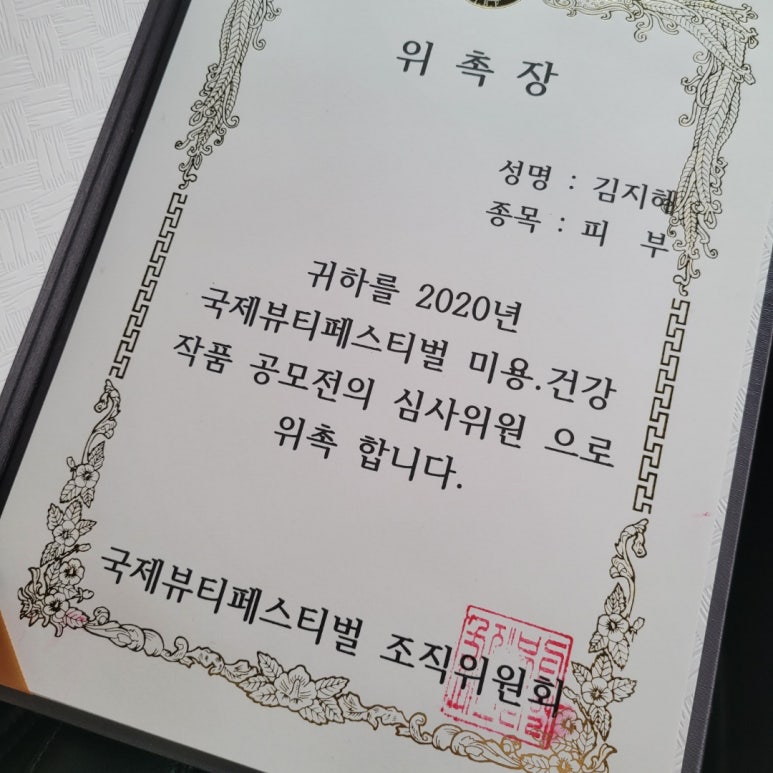 위 촉 장
성명 : 김지혜
종목 : 피 부
귀하를 2020년
국제뷰티페스티벌 미용.건강
작품 공모전의 심사위원 으로
위촉 합니다.
국제뷰티페스티벌 조직위원회